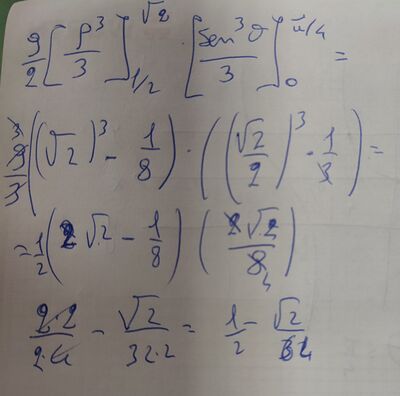 9/2 [ρ³/3]_{1/2}^{√2} · [sen³θ/3]_0^{π/4} =
((√2)³ - 1/8) · ((√2/2)³ · 1/3) =
= 1/2 (2√2 - 1/8) (2√2/8)
2·2/2·4 - √2/32·2 = 1/2 - √2/64